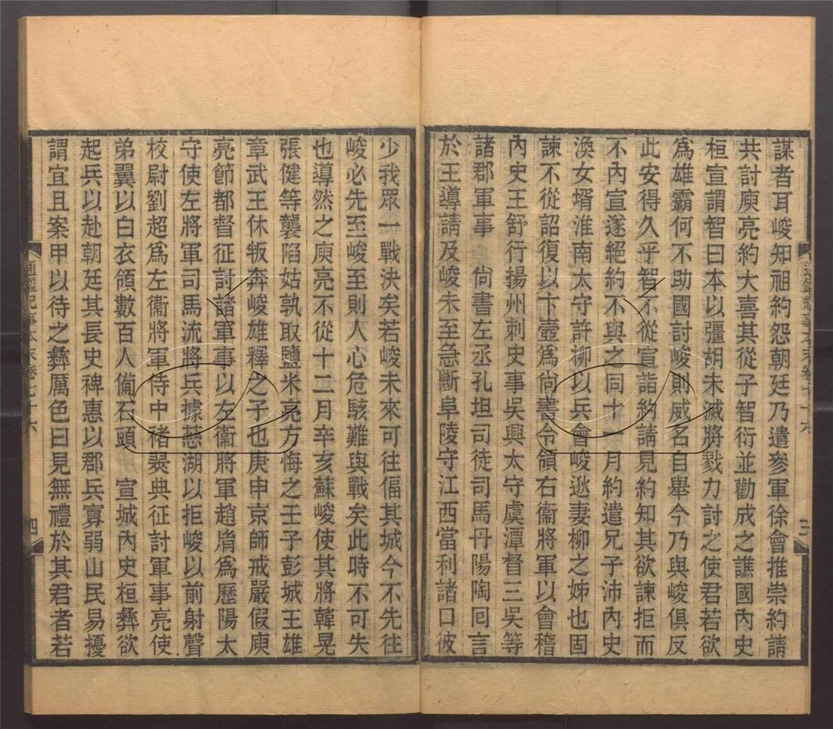 謀者耳峻知祖約怨朝廷乃遣參軍徐會推崇約請
共討庾亮約大喜其從子智衍並勸成之譙國內史
桓宣謂智曰本以彊胡未滅將戮力討之使君若欲
爲雄霸何不助國討峻則威名自舉今乃與峻俱反
此安得久乎智不從宣詣約請見約知其欲諫拒而
不內宣遂絕約不與之同十一月約遣兄子沛內史
渙女壻淮南太守許柳以兵會峻逖妻柳之姊也固
諫不從詔復以卞壼爲尚書令領右衞將軍以會稽
內史王舒行揚州刺史事吳興太守虞潭督三吳等
諸郡軍事 尚書左丞孔坦司徒司馬丹陽陶回言
於王導請及峻未至急斷阜陵守江西當利諸口彼
通鑑紀事本末卷十六
三
少我眾一戰決矣若峻未來可往偪其城今不先往
峻必先至峻至則人心危駭難與戰矣此時不可失
也導然之庾亮不從十二月辛亥蘇峻使其將韓晃
張健等襲陷姑孰取鹽米亮方悔之壬子彭城王雄
章武王休叛奔峻雄釋之子也庚申京師戒嚴假庾
亮節都督征討諸軍事以左衞將軍趙脣爲歷陽太
守使左將軍司馬流將兵據慈湖以拒峻以前射聲
校尉劉超爲左衞將軍侍中褚翜典征討軍事亮使
弟翼以白衣領數百人備石頭 宣城內史桓彝欲
起兵以赴朝廷其長史裨惠以郡兵寡弱山民易擾
謂宜且案甲以待之彝厲色曰見無禮於其君者若
通鑑紀事本末卷十六
四